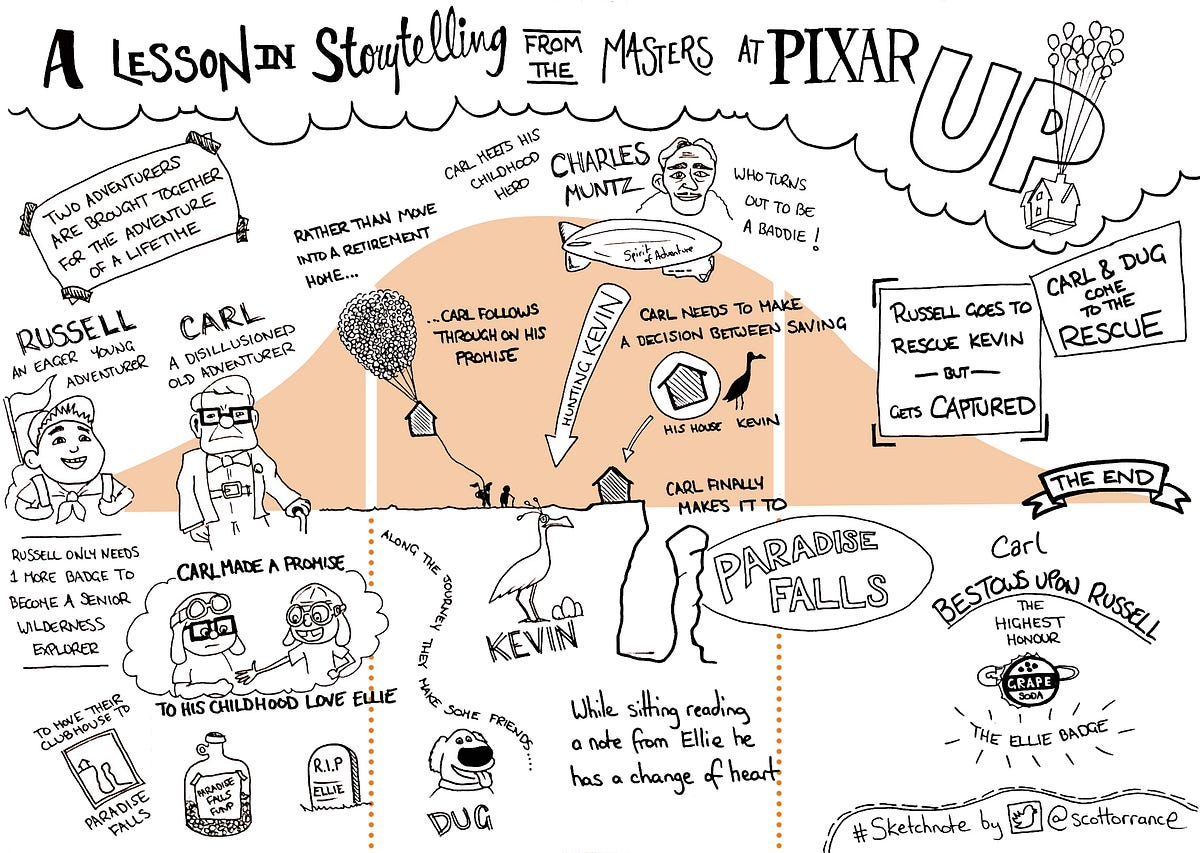 A LESSON IN Storytelling FROM THE MASTERS AT PIXAR
UP
TWO ADVENTURERS
ARE BROUGHT TOGETHER
FOR THE ADVENTURE
OF A LIFETIME
RUSSELL
AN EAGER YOUNG
ADVENTURER
CARL
A DISILLUSIONED
OLD ADVENTURER
RUSSELL ONLY NEEDS
1 MORE BADGE TO
BECOME A SENIOR
WILDERNESS
EXPLORER
CARL MADE A PROMISE
TO HIS CHILDHOOD LOVE ELLIE
TO MOVE THEIR
CLUBHOUSE TO
PARADISE
FALLS
PARADISE
FALLS
FUND
R.I.P
ELLIE
RATHER THAN MOVE
INTO A RETIREMENT
HOME...
...CARL FOLLOWS
THROUGH ON HIS
PROMISE
CARL MEETS HIS
CHILDHOOD
HERO
CHARLES
MUNTZ
WHO TURNS
OUT TO BE
A BADDIE!
Spirit
of Adventure
HUNTING KEVIN
ALONG THE JOURNEY THEY MAKE SOME FRIENDS....
KEVIN
DUG
CARL NEEDS TO MAKE
A DECISION BETWEEN SAVING
HIS HOUSE KEVIN
CARL FINALLY
MAKES IT TO
PARADISE
FALLS
While sitting reading
a note from Ellie he
has a change of heart
RUSSELL GOES TO
RESCUE KEVIN
— BUT —
GETS CAPTURED
CARL & DUG
COME
TO THE
RESCUE
THE END
Carl
BESTOWS UPON RUSSELL
THE
HIGHEST
HONOUR
GRAPE
SODA
THE ELLIE BADGE
#Sketchnote by @scottorrance